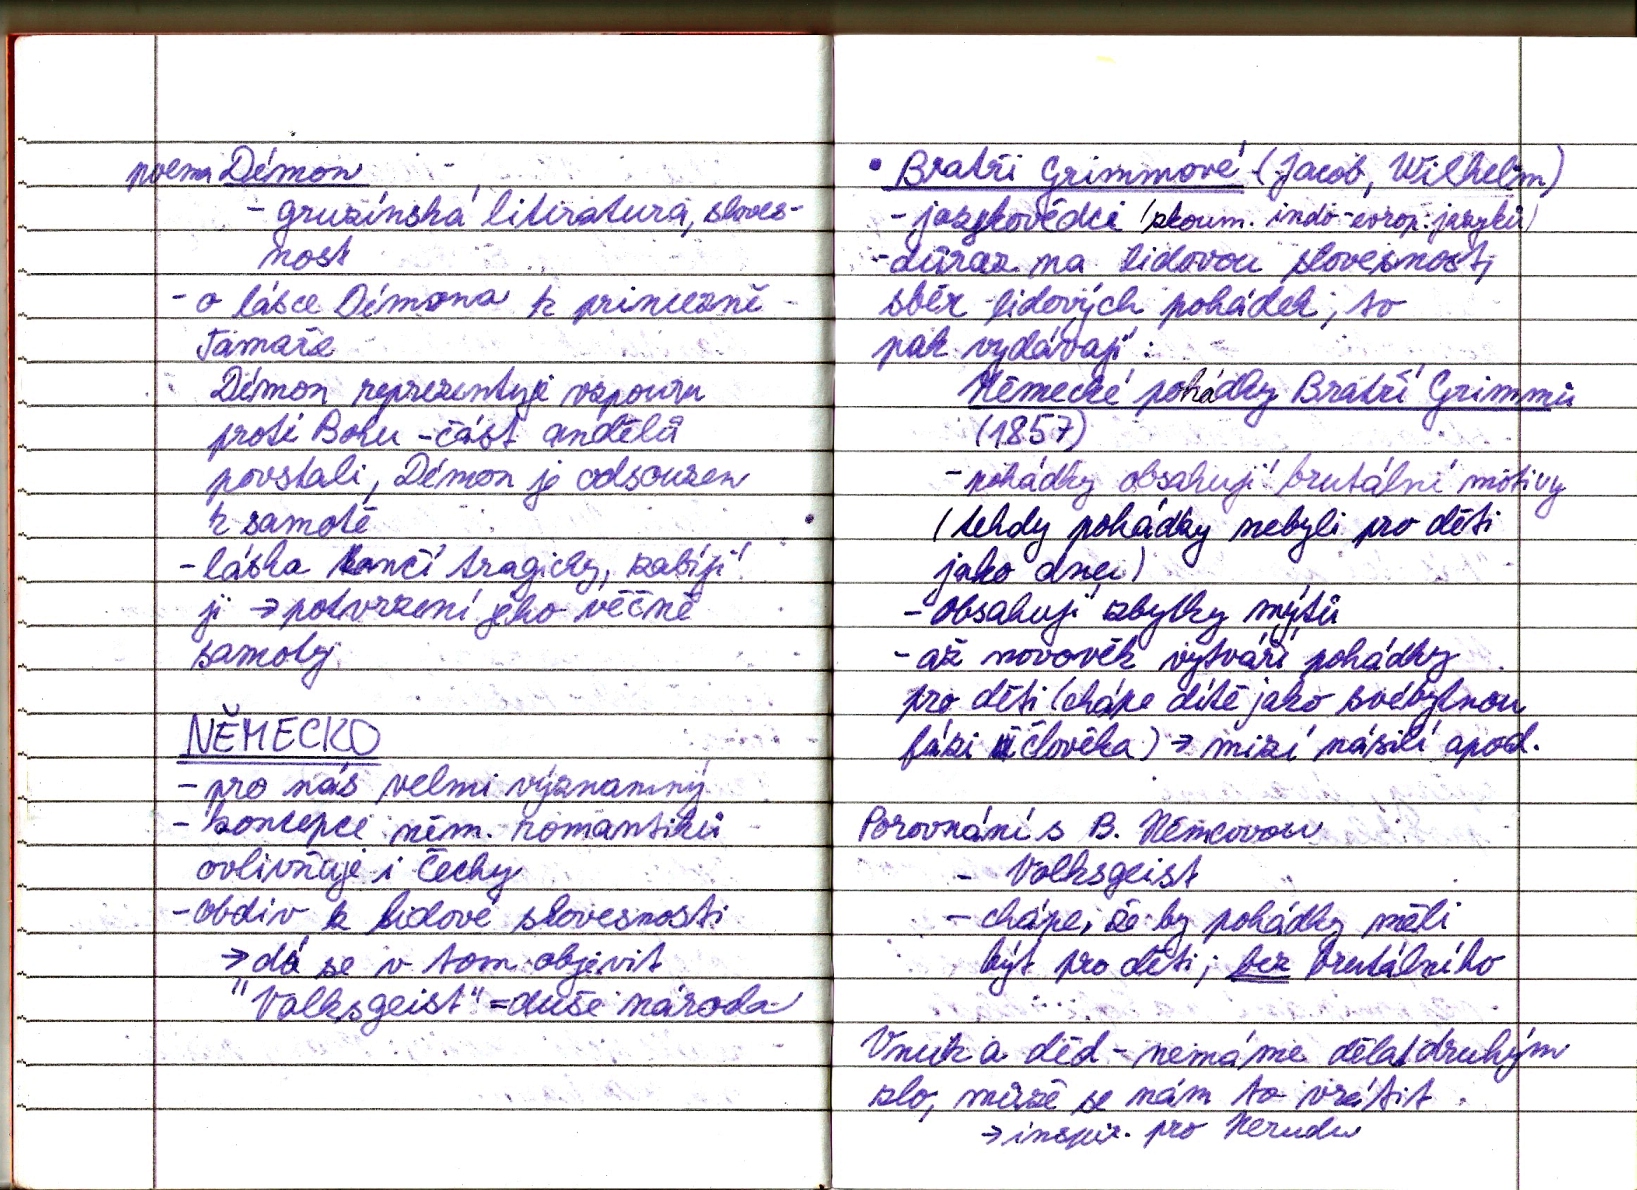 poema Démon
- gruzínská literatura, sloves-
nost
- o lásce Démona k princezně
Tamaře
Démon reprezentuje vzpouru
proti Bohu - část andělů
povstali, Démon je odsouzen
k samotě
- láska končí tragicky, zabíjí
ji → potvrzení jeho věčné
samoty
NĚMECKO
- pro nás velmi významný
- koncepce něm. romantiků
ovlivňuje i Čechy
- obdiv k lidové slovesnosti
→ dá se v tom objevit
"Volksgeist" = duše národa
• Bratři Grimmové (Jacob, Wilhelm)
- jazykovědci (zkoum. indo-evrop. jazyků)
- důraz na lidovou slovesnost,
sběr lidových pohádek; to
pak vydávají:
Německé pohádky Bratří Grimmů
(1857)
- pohádky obsahují brutální motivy
(tehdy pohádky nebyli pro děti
jako dnes)
- obsahují zbytky mýtů
- až novověk vytváří pohádky
pro děti (chápe dítě jako svébytnou
fázi člověka) → mizí násilí apod.
Porovnání s B. Němcovou
- Volksgeist
- chápe, že by pohádky měli
být pro děti; bez brutálního
Vnuk a děd - nemáme dělat druhým
zlo, může se nám to vrátit.
→ inspir. pro Nerudu